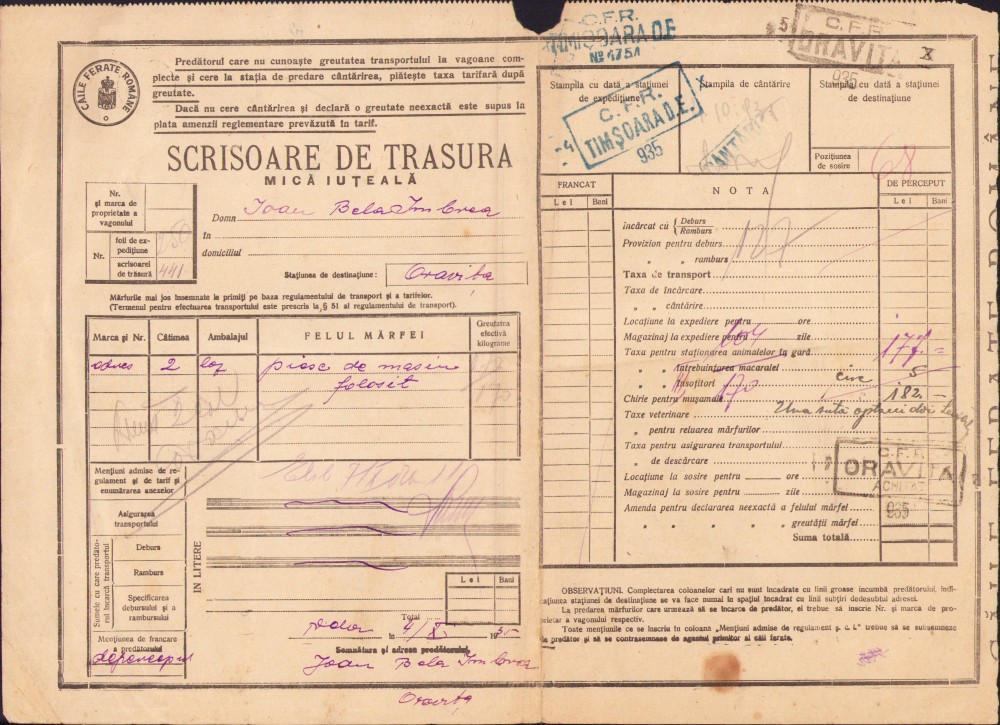 CAILE FERATE ROMANE
Predătorul care nu cunoaşte greutatea transportului la vagoane com-
plecte şi cere la staţia de predare cântărirea, plăteşte taxa tarifară după
greutate.
Dacă nu cere cântărirea şi declară o greutate neexactă este supus la
plata amenzii reglementare prevăzută în tarif.
SCRISOARE DE TRASURA
MICĂ IUŢEALĂ
Nr.
şi marca de
proprietate a
vagonului
Nr.
foii de ex-
pediţiune
scrisorei
de trăsură
441
Domn Ioan Bela Imbrea
în
domiciliul
Staţiunea de destinaţiune: Oravita
Mărfurile mai jos însemnate le primiţi pe baza regulamentului de transport şi a tarifelor.
(Termenul pentru efectuarea transportului este prescris la § 51 al regulamentului de transport).
Marca şi Nr. Câtimea Ambalajul FELUL MĂRFEI Greutatea efectivă kilograme
adres 2 loz piese de masini
folosit
170
Menţiuni admise de re-
gulament şi de tarif şi
enumărarea anexelor
Asigurarea
transportului
Sumele cu care predăto-
rul încarcă transportul
Deburs
Ramburs
Specificarea
debursului şi a
rambursului
Menţiunea de francare
a predătorului
IN LITERE
Lei Bani
Total
4/X 1935
Semnătura şi adresa predătorului,
Ioan Bela Imbrea
Oravita
C.F.R.
TIMIŞOARA D.E
No 1751
C.F.R.
ORAVITA
935
x
Stampila cu dată a staţiunei
de expediţiune
Stampila de cântărire
Stampila cu dată a staţiunei
de destinaţiune
C.F.R.
TIMŞOARA D.E.
-4
935
Poziţiunea
de sosire
68
FRANCAT
Lei Bani
NOTA
DE PERCEPUT
Lei Bani
încărcat cu { Deburs
Ramburs
Provizion pentru deburs
" " ramburs
Taxa de transport
Taxa de încărcare
" " cântărire
Locaţiune la expediere pentru ore
Magazinaj la expediere pentru zile
104
Taxa pentru staţionarea animalelor în gară
177 =
" " întrebuinţarea macaralei
5
" " însoţitori
170
Chirie pentru muşamale
182 -
Taxe veterinare
Una suta optzeci doi Lei
" pentru reluarea mărfurilor
Taxa pentru asigurarea transportului
" de descărcare
Locaţiune la sosire pentru ore
Magazinaj la sosire pentru zile
Amenda pentru declararea neexactă a felului mărfei
" " " " greutăţii mărfei
Suma totală
C.F.R.
ORAVITA
ACHITAT
935
OBSERVAŢIUNI. Complectarea coloanelor cari nu sunt încadrate cu linii groase incumbă predătorului, indi-
caţiunea staţiunei de destinaţiune se va face numai în spaţiul încadrat cu linii subţiri dedesubtul adresei.
La predarea mărfurilor care urmează să se încarce de predător, el trebue să înscrie Nr. şi marca de pro-
prietar a vagonului respectiv.
Toate menţiunile ce se înscriu în coloana „Menţiuni admise de regulament ş. c. l.” trebue să se subsemneze
de predător şi să se contrasemneze de agentul primitor al căii ferate.